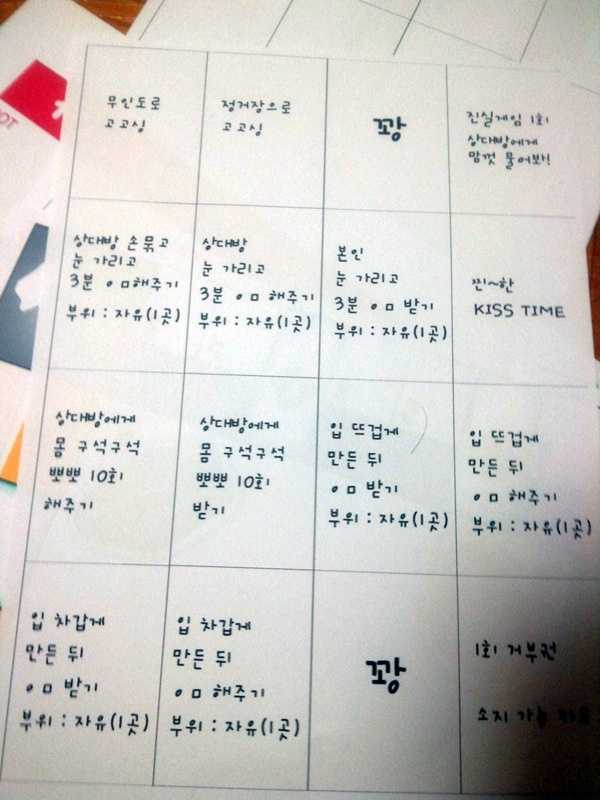 무인도로
고고싱
정거장으로
고고싱
꽝
진실게임 1회
상대방에게
맘껏 물어봐!
상대방 손 묶고
눈 가리고
3분 ㅇㅁ해주기
부위 : 자유(1곳)
상대방
눈 가리고
3분 ㅇㅁ해주기
부위 : 자유(1곳)
본인
눈 가리고
3분 ㅇㅁ 받기
부위 : 자유(1곳)
찐~한
KISS TIME
상대방에게
몸 구석구석
뽀뽀 10회
해주기
상대방에게
몸 구석구석
뽀뽀 10회
받기
입 뜨겁게
만든 뒤
ㅇㅁ 받기
부위 : 자유(1곳)
입 뜨겁게
만든 뒤
ㅇㅁ 해주기
부위 : 자유(1곳)
입 차갑게
만든 뒤
ㅇㅁ 받기
부위 : 자유(1곳)
입 차갑게
만든 뒤
ㅇㅁ 해주기
부위 : 자유(1곳)
꽝
1회 거부권
소지 가능